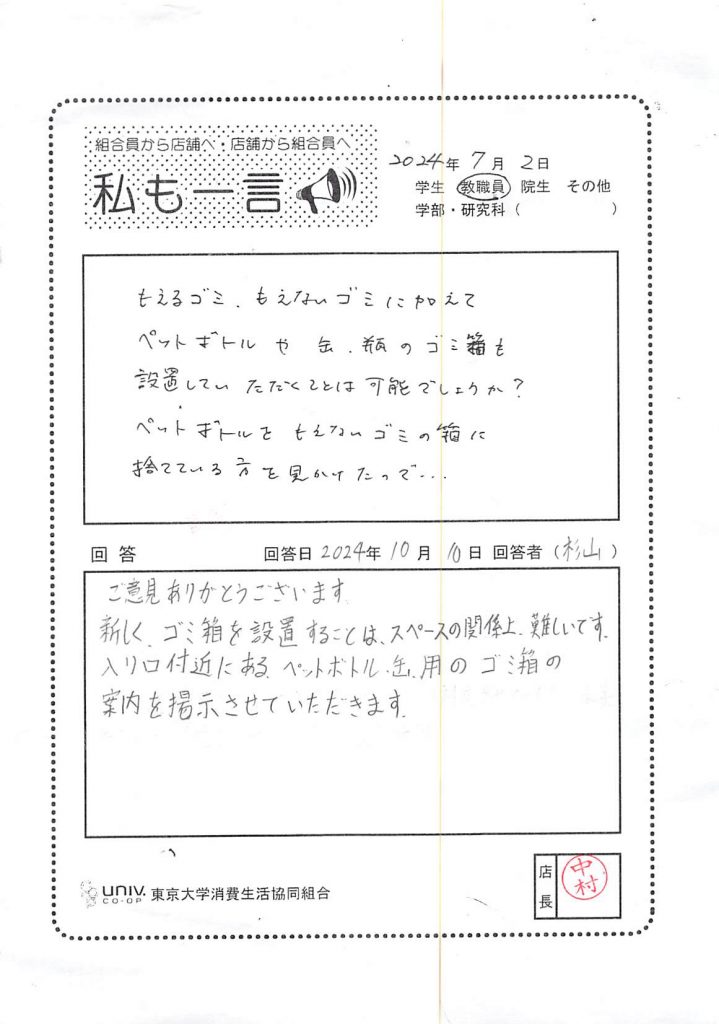 組合員から店舗へ・店舗から組合員へ
私も一言
2024年7月2日
学生 教職員 院生 その他
学部・研究科（ ）
もえるゴミ、もえないゴミに加えて
ペットボトルや缶、瓶のゴミ箱も
設置していただくことは可能でしょうか？
ペットボトルをもえないゴミの箱に
捨てている方を見かけたので…
回答 回答日2024年10月10日 回答者（杉山）
ご意見ありがとうございます。
新しく、ゴミ箱を設置することは、スペースの関係上、難しいです。
入り口付近にある、ペットボトル・缶、用のゴミ箱の
案内を掲示させていただきます。
UNIV. CO-OP 東京大学消費生活協同組合
店長 中村